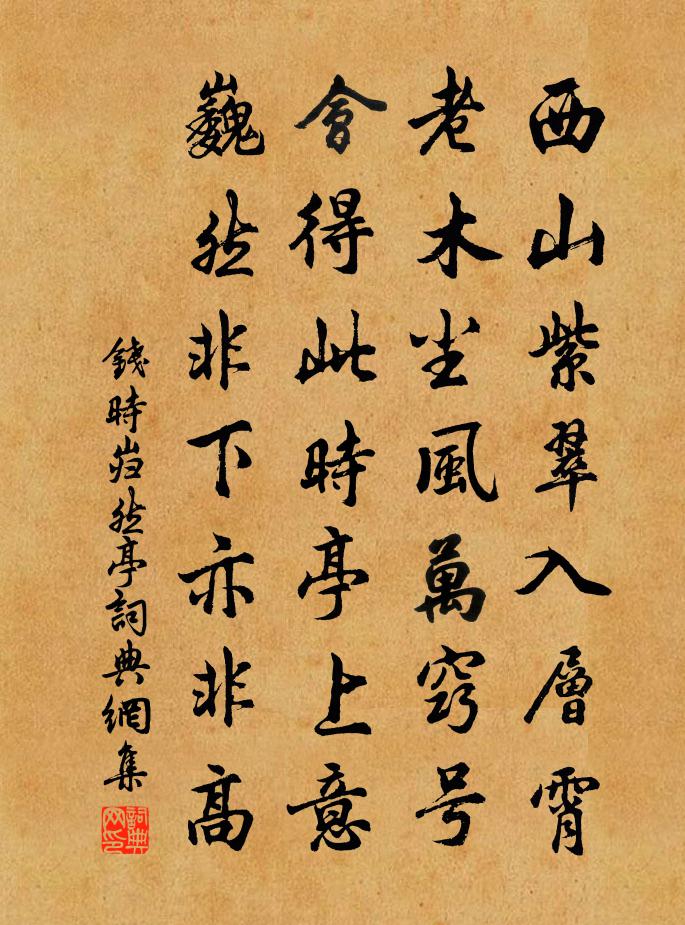 西山紫翠入層霄
老木坐風萬竅号
會得此時亭上意
巍然非下亦非高
錢時岿然亭詞典網集
詞典网印